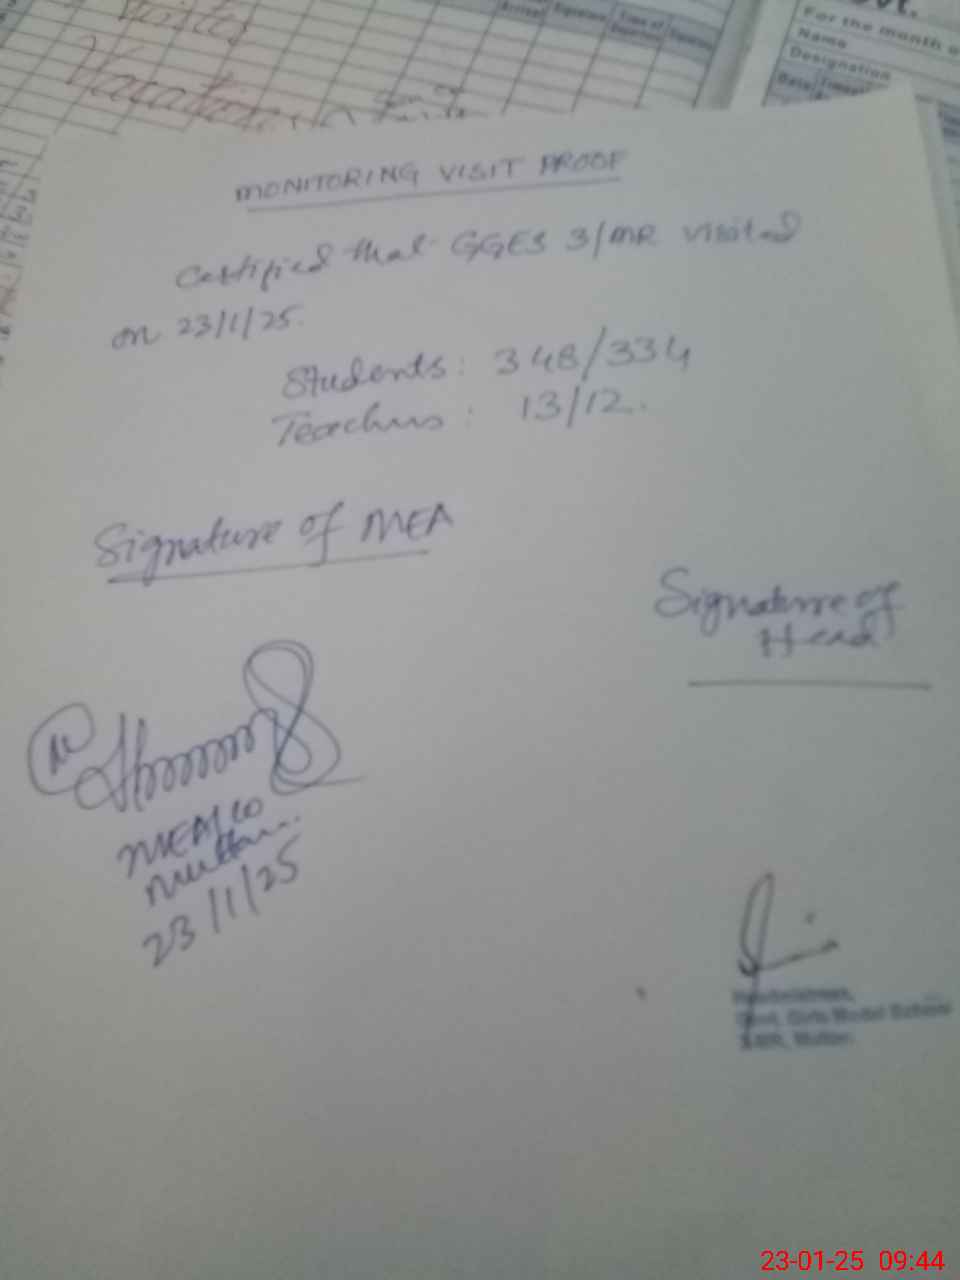 Arrival Signature Time of Departure Signature
For the month o
Name
Designation
Date
Vacation
MONITORING VISIT PROOF
Certified that GGES 3/MR visited
on 23/1/25.
Students: 348/334
Teachers: 13/12.
Signature of MEA
Signature of
Head
MEA
Multan
23/1/25
Headmistress,
Govt. Girls Model School
3-MR, Multan
23-01-25 09:44